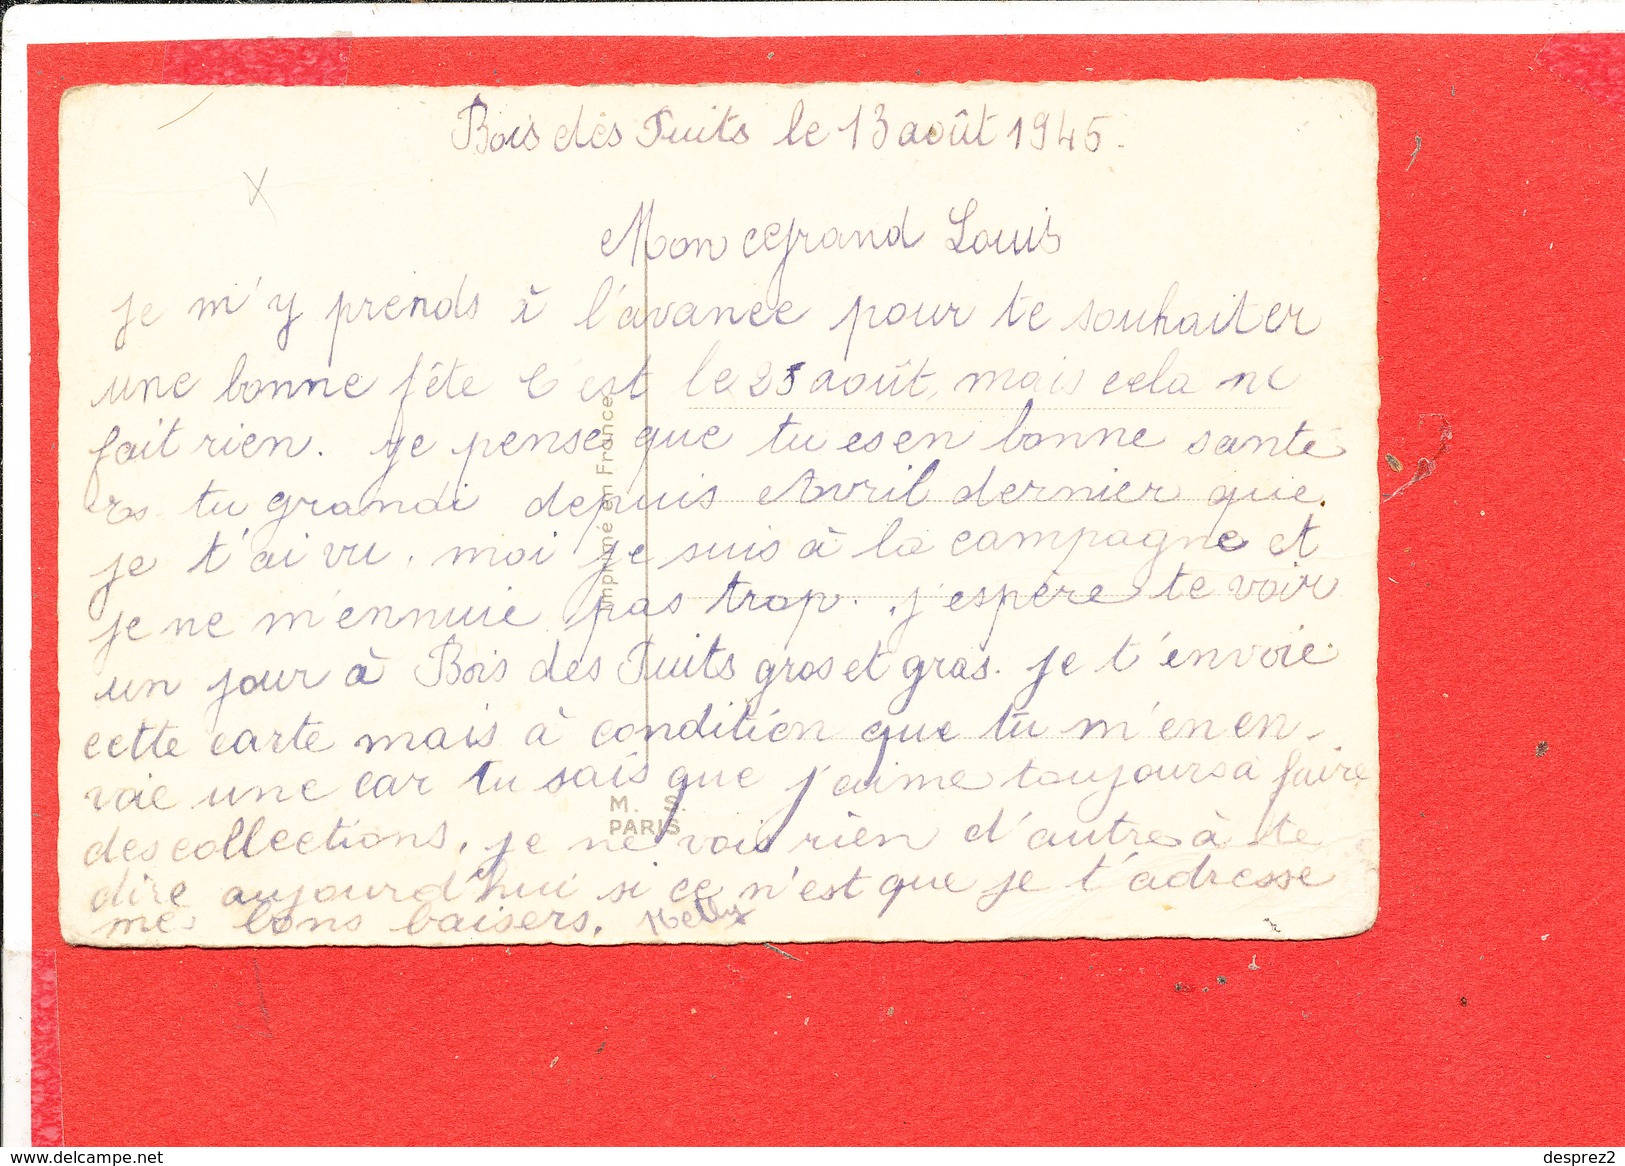 Bois des Puits le 13 août 1945.
Mon Grand Louis
je m'y prends à l'avance pour te souhaiter
une bonne fête c'est le 25 août, mais cela ne
fait rien. je pense que tu es en bonne santé
es tu grandi depuis Avril dernier que
je t'ai vu. moi je suis à la campagne et
je ne m'ennuie pas trop. j'espère te voir
un jour à Bois des Puits gros et gras. je t'envoie
cette carte mais à condition que tu m'en en-
voie une car tu sais que j'aime toujours à faire
des collections. je ne vois rien d'autre à te
dire aujourd'hui si ce n'est que je t'adresse
mes bons baisers. Nelly
Imprimé en France
M. S.
PARIS
www.delcampe.net
desprez2